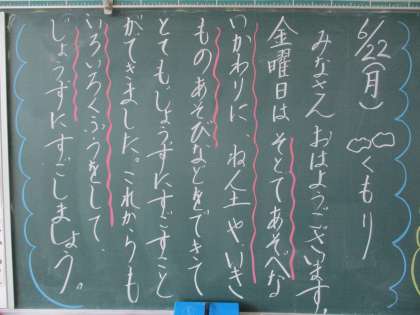 6/22(月) くもり
みなさん おはようございます。
金曜日は そとであそべな
いかわりに、ねん土や、いき
ものあそびなどをできて
とても、じょうずにすごすこと
ができました。これからも
いろいろくふうをして、
じょうずにすごしましょう。